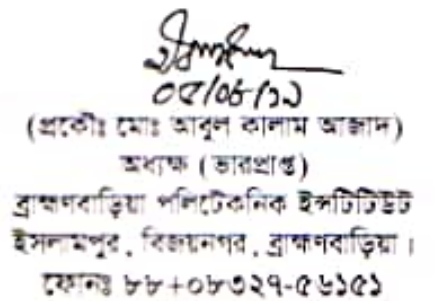 ০৫/০৮/১৯
(প্রকৌঃ মোঃ আবুল কালাম আজাদ)
অধ্যক্ষ (ভারপ্রাপ্ত)
ব্রাহ্মণবাড়িয়া পলিটেকনিক ইন্সটিটিউট
ইসলামপুর, বিজয়নগর, ব্রাহ্মণবাড়িয়া।
ফোনঃ ৮৮+০৮৩২৭-৫৬১৫১